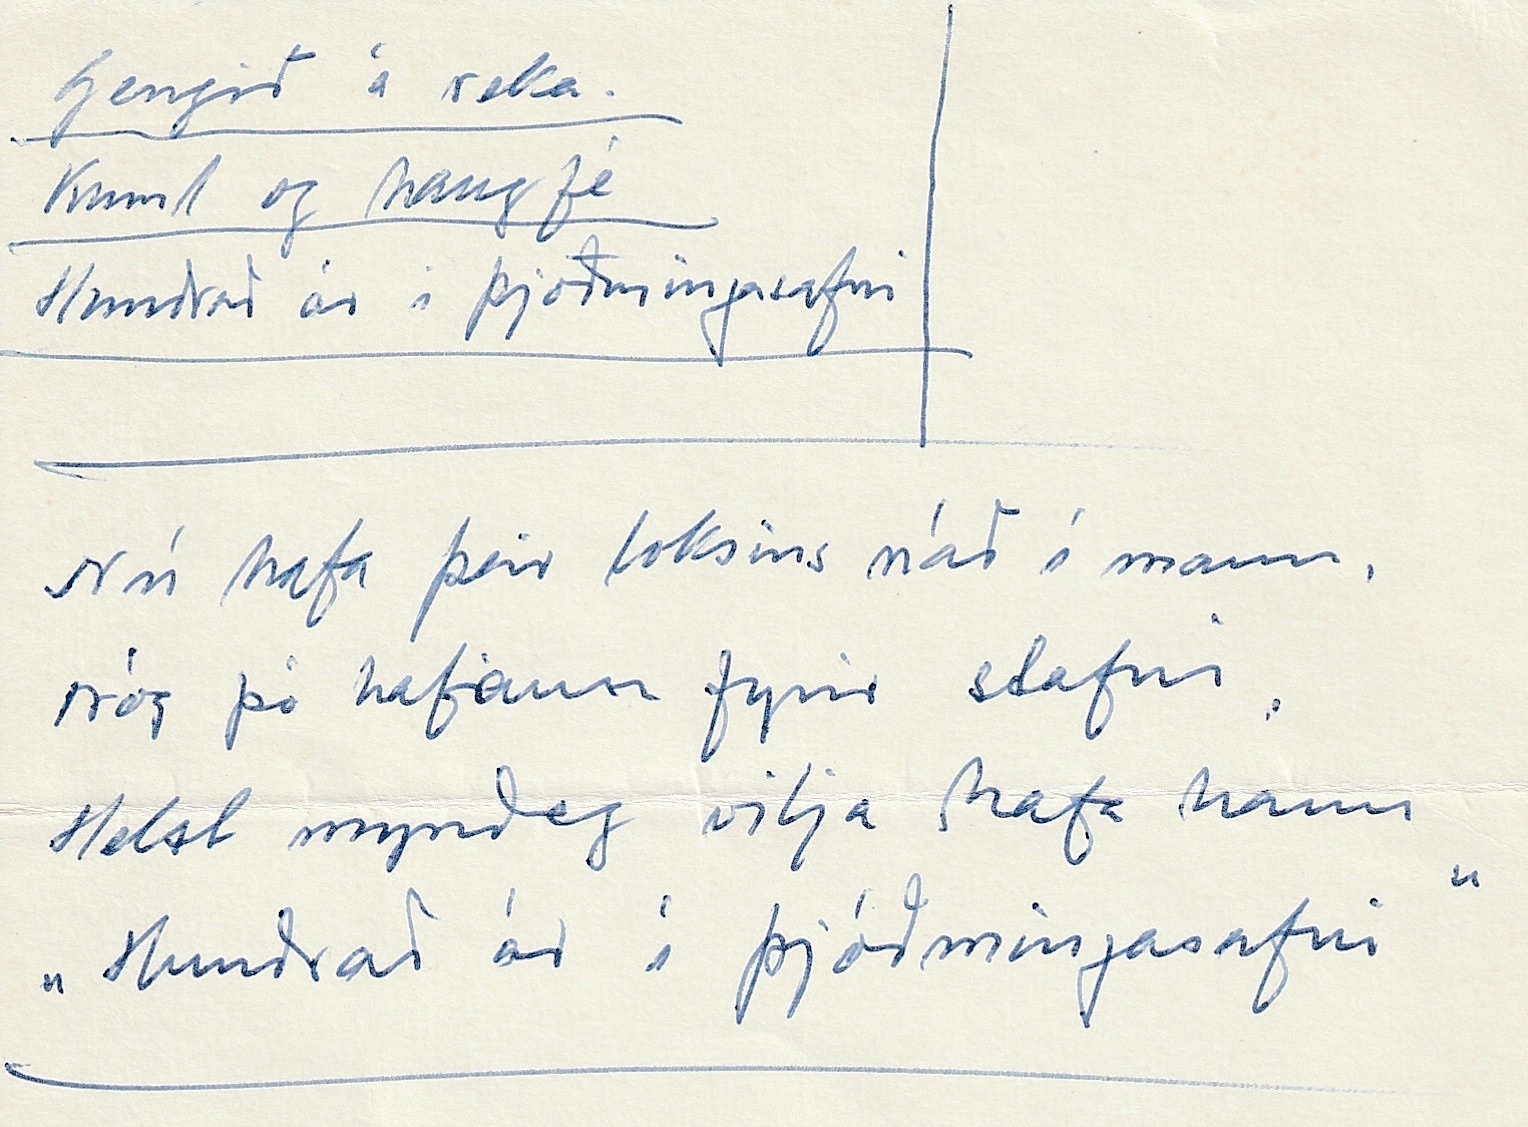 Gengið á reka.
Kuml og haugfé
Hundrað ár í þjóðminjasafni
Nú hafa þeir loksins náð í mann,
Nóg þó hafi ann fyrir stafni,
Helst mynd eg vilja hafa hann
„Hundrað ár í þjóðminjasafni"